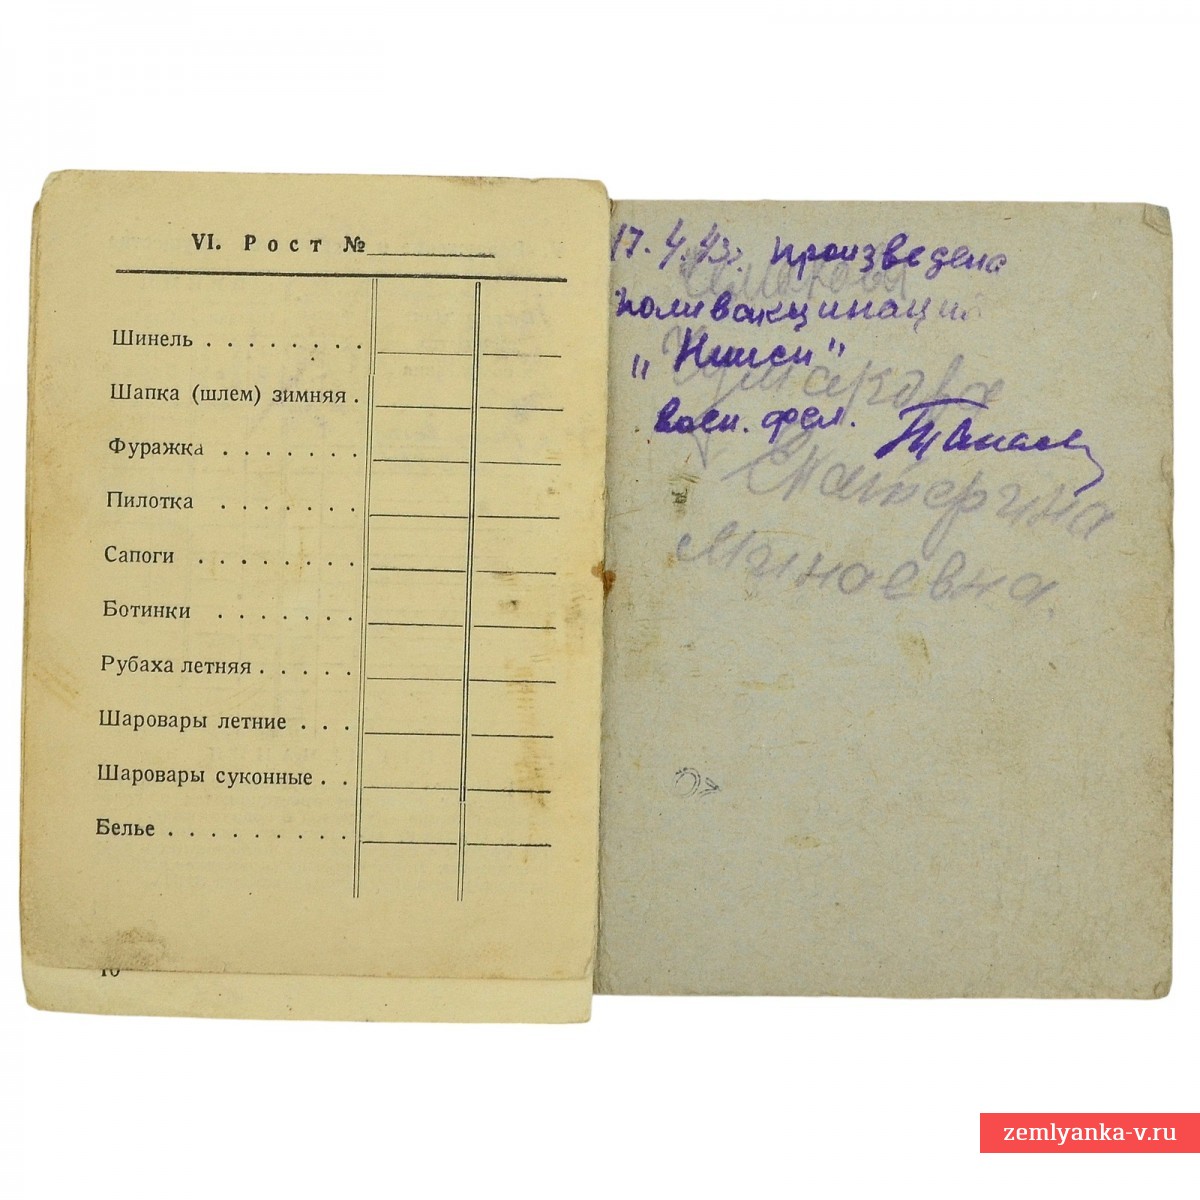 VI. Рост №
Шинель
Шапка (шлем) зимняя
Фуражка
Пилотка
Сапоги
Ботинки
Рубаха летняя
Шаровары летние
Шаровары суконные
Белье
10
17.4.43г. произведена
поливакцинация
воен. фел.
Чумакова
Екатерина
Минаевна.
zemlyanka-v.ru